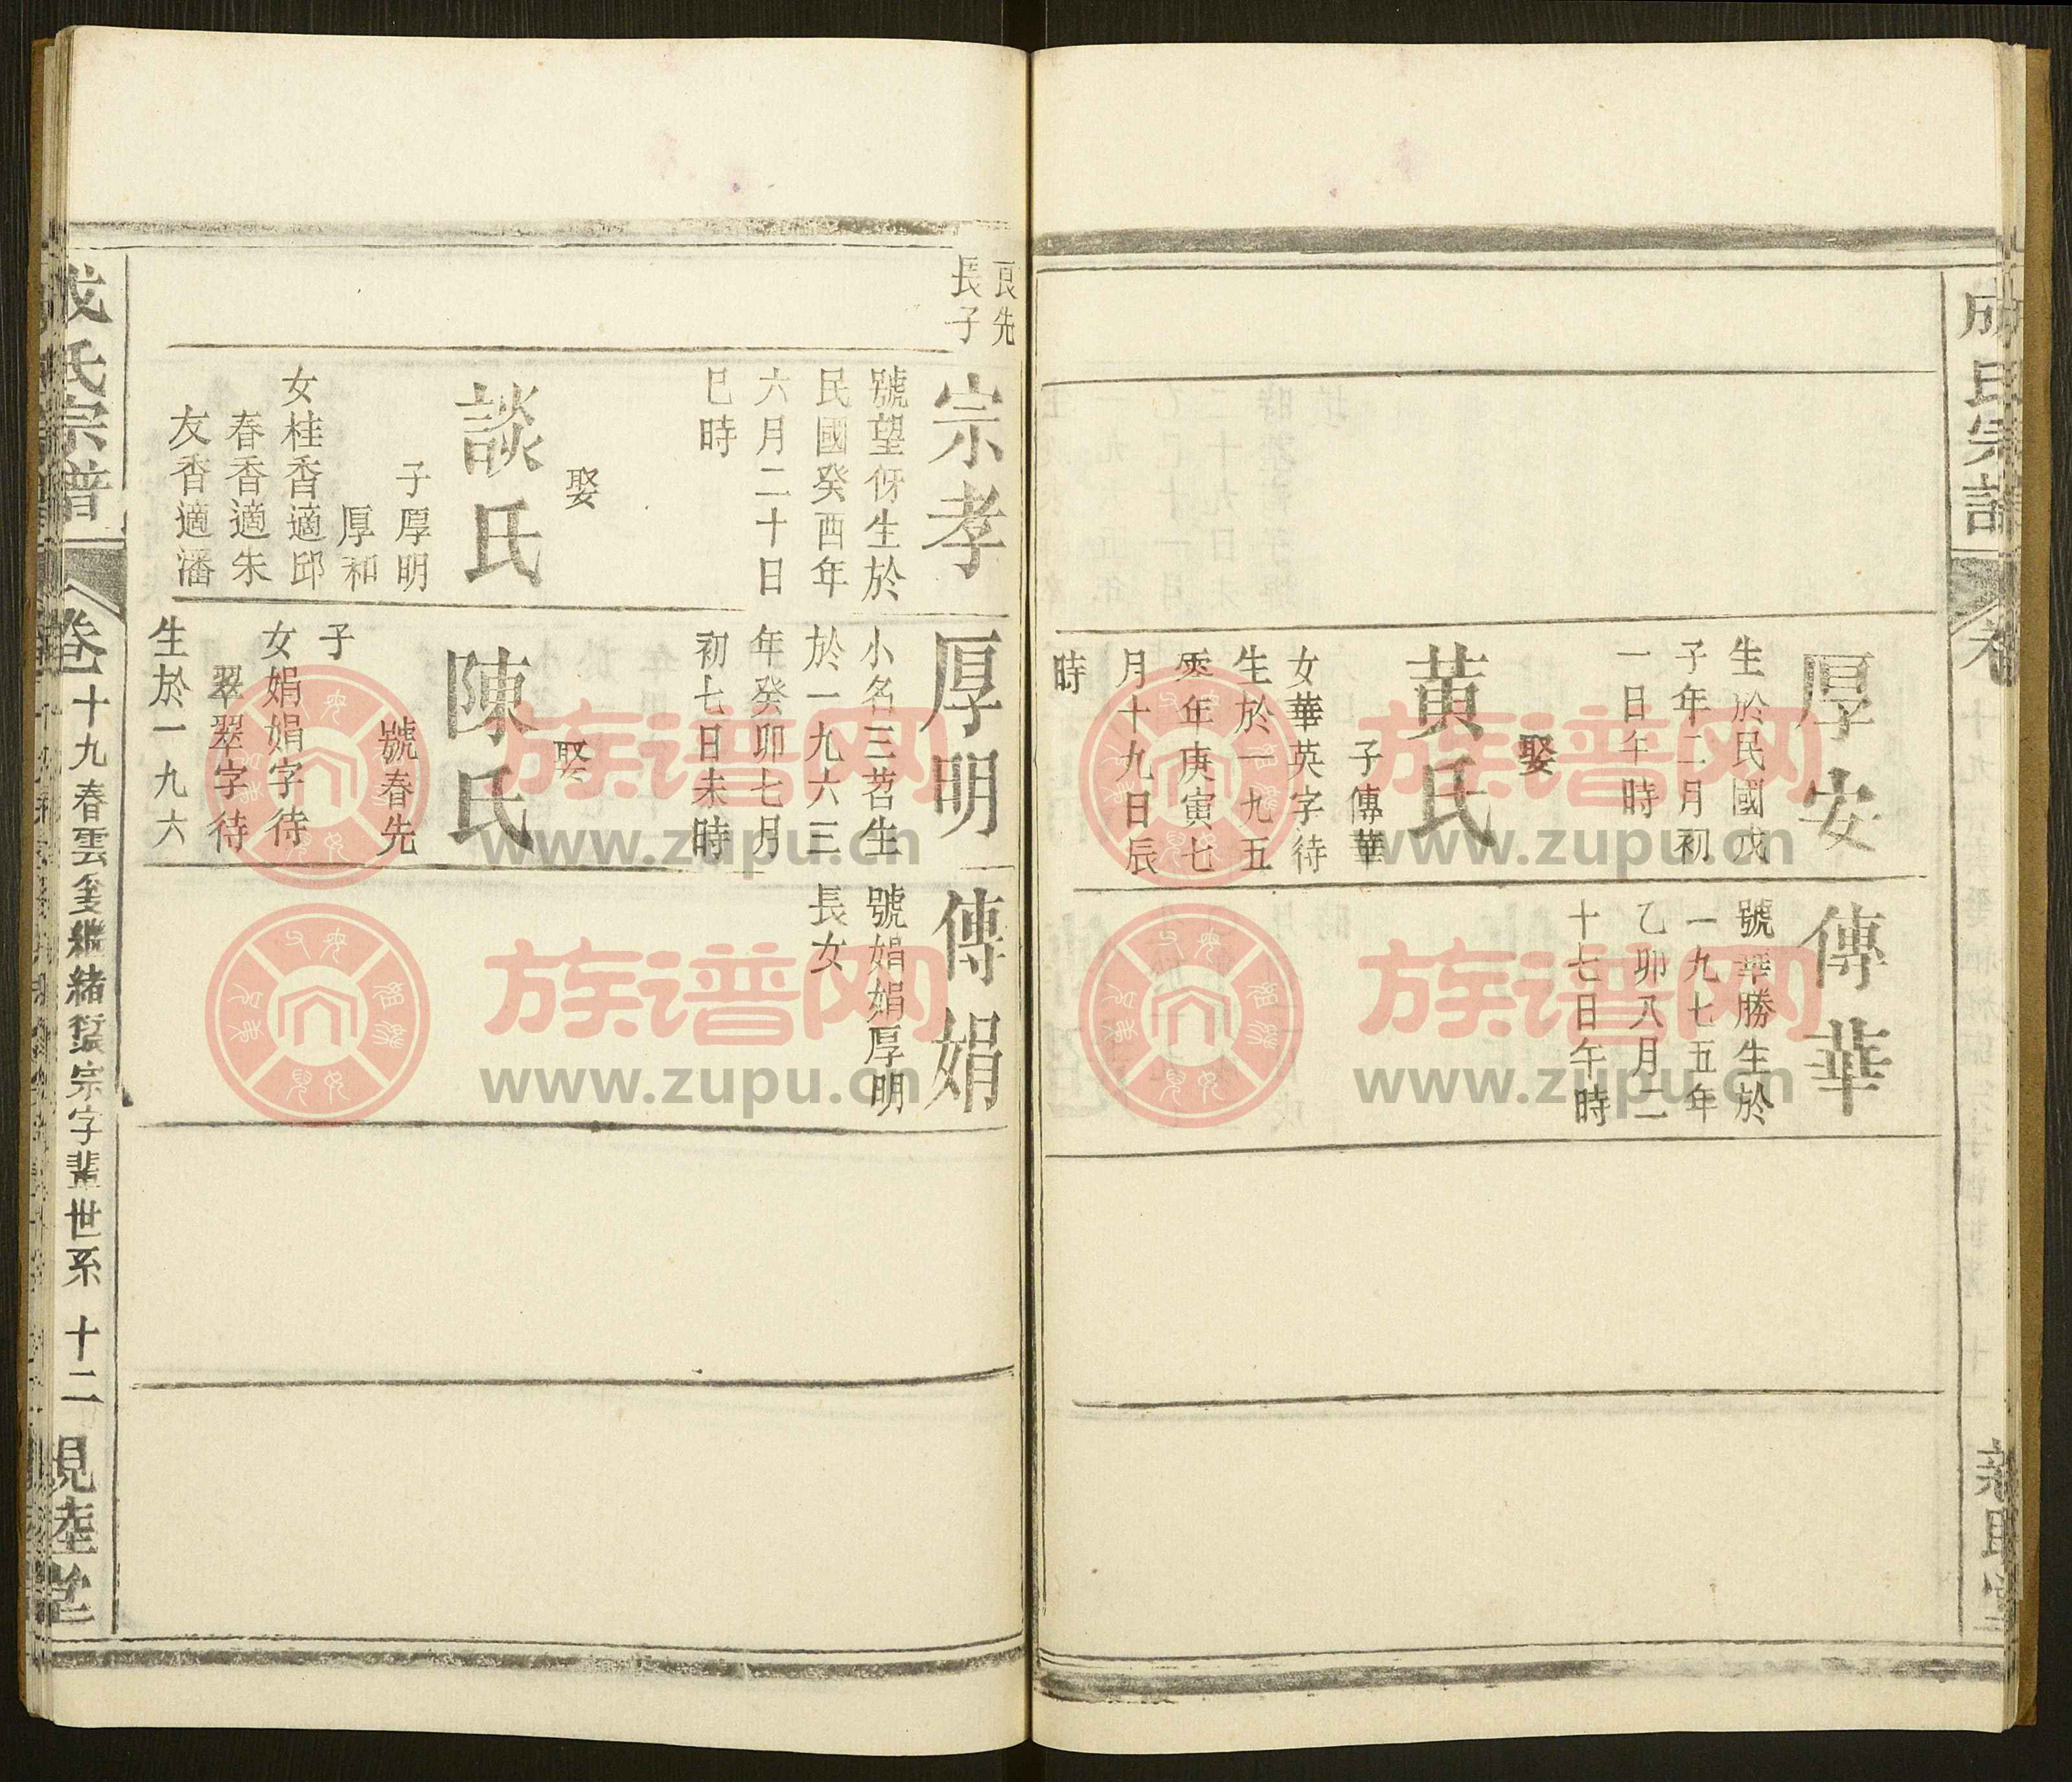 厚安
生於民國戊
子年二月初
一日午時
娶
黃氏
子傳華
女華英字待
生於一九五
零年庚寅七
月十九日辰
時
傳華
號華勝生於
一九七五年
乙卯八月二
十七日午時
良先
長子
宗孝
號望伢生於
民國癸酉年
六月二十日
巳時
娶
談氏
子厚明
厚和
女桂香適邱
春香適朱
友香適潘
厚明
小名三苕生
於一九六三
年癸卯七月
初七日未時
娶
陳氏
號春先
子
女娟娟字待
翠翠字待
生於一九六
傳娟
號娟娟厚明
長女
氏宗譜
卷十九春雲公繼緒衍宗字輩世系 十二
族谱网
www.zupu.cn
族谱网
www.zupu.cn
族谱网
www.zupu.cn
族谱网
www.zupu.cn